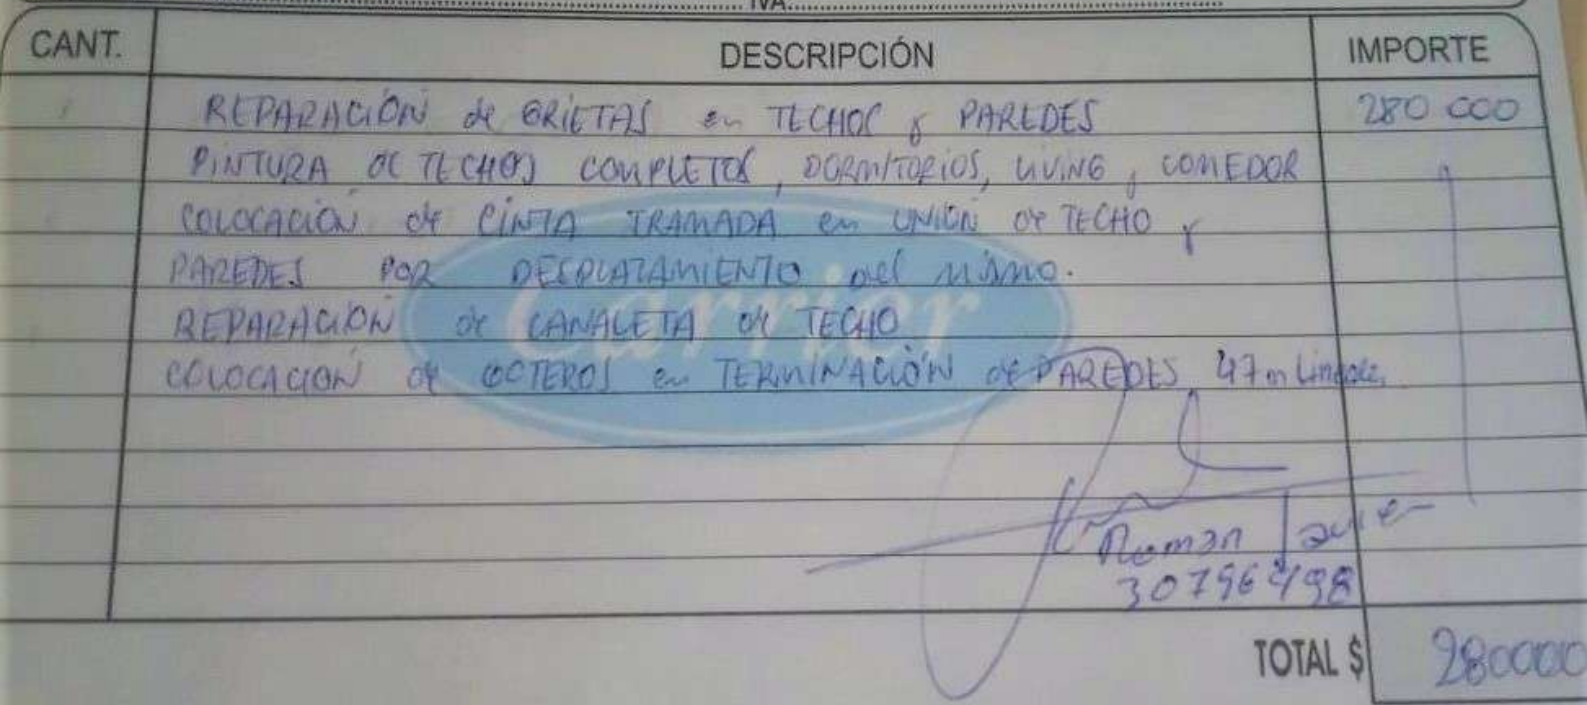 IVA
CANT. DESCRIPCIÓN IMPORTE
REPARACIÓN de GRIETAS en TECHOS y PAREDES 280 000
PINTURA de TECHOS COMPLETOS, DORMITORIOS, LIVING, COMEDOR
COLOCACIÓN de CINTA TRAMADA en UNIÓN de TECHO y
PAREDES POR DESPLAZAMIENTO del mismo.
REPARACIÓN de CANALETA de TECHO
Carrier
COLOCACIÓN de en TERMINACIÓN de PAREDES 47 m Lineales
Roman Javier
30796498
TOTAL $ 280000